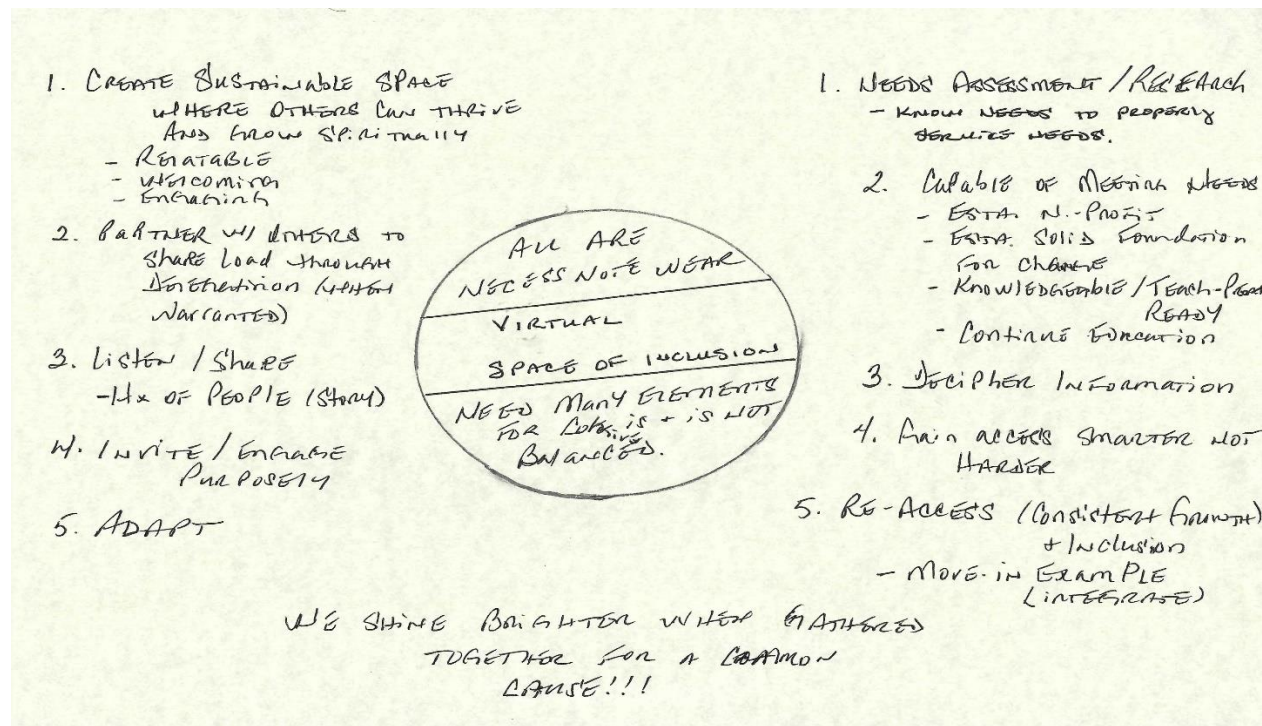 1. CREATE SUSTAINABLE SPACE
WHERE OTHERS CAN THRIVE
AND GROW SPIRITUALLY
- RELATABLE
- WELCOMING
- ENGAGING
2. PARTNER W/ OTHERS TO
SHARE LOAD THROUGH
(WHEN
WARRANTED)
3. LISTEN / SHARE
- Hx OF PEOPLE (STORY)
4. INVITE / ENGAGE
PURPOSELY
5. ADAPT
ALL ARE
NECESS NOTE WEAR
VIRTUAL
SPACE OF INCLUSION
NEED MANY ELEMENTS
FOR IS + IS NOT
BALANCED.
1. NEEDS ASSESSMENT / RESEARCH
- KNOW NEEDS TO PROPERLY
SERVICE NEEDS.
2. CAPABLE OF MEETING NEEDS
- ESTA. N.-PROFIT
- ESTA. SOLID FOUNDATION
FOR CHANGE
- KNOWLEDGEABLE / TEACH-
READY
- CONTINUE EDUCATION
3. DECIPHER INFORMATION
4. GAIN ACCESS SMARTER NOT
HARDER
5. RE-ACCESS (CONSISTENT GROWTH)
+ INCLUSION
- MOVE-IN EXAMPLE
(INTEGRATE)
WE SHINE BRIGHTER WHEN GATHERED
TOGETHER FOR A COMMON
CAUSE!!!